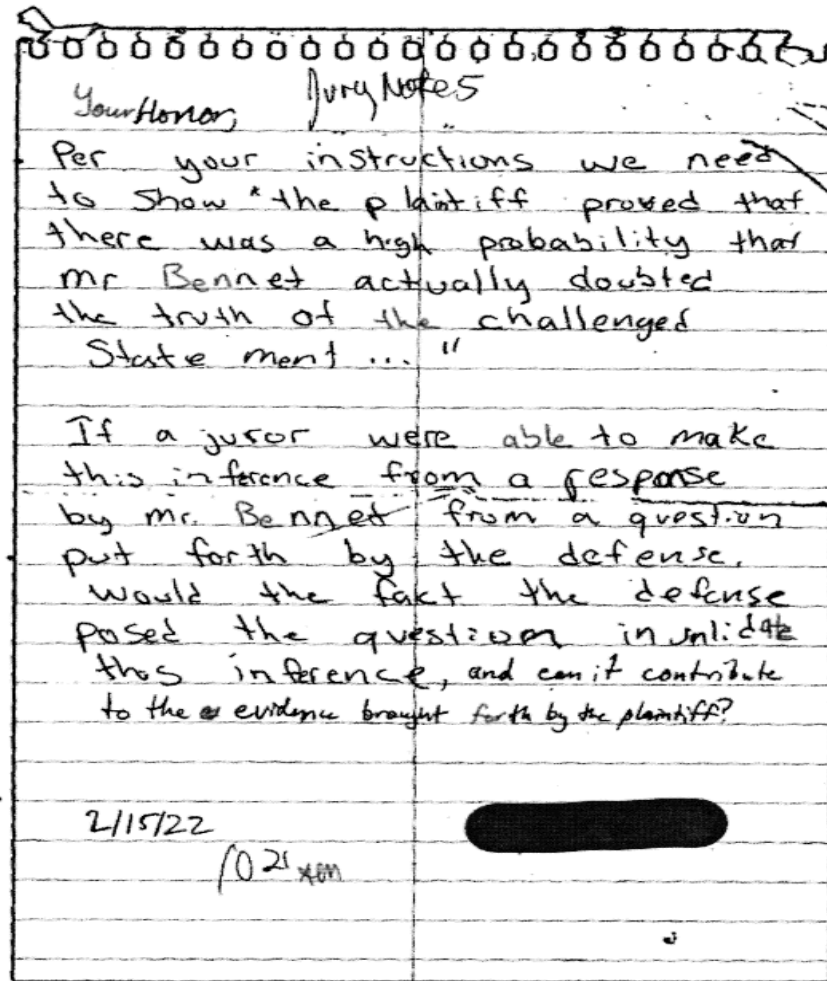 Jury Note 5
Your Honor,
Per your instructions we need
to show "the plaintiff proved that
there was a high probability that
mr Bennet actually doubted
the truth of the challenged
State ment ... "
If a juror were able to make
this inference from a response
by mr. Bennet from a question
put forth by the defense,
would the fact the defense
posed the question invalidate
this inference, and can it contribute
to the evidence brought forth by the plaintiff?
2/15/22
10 21 am